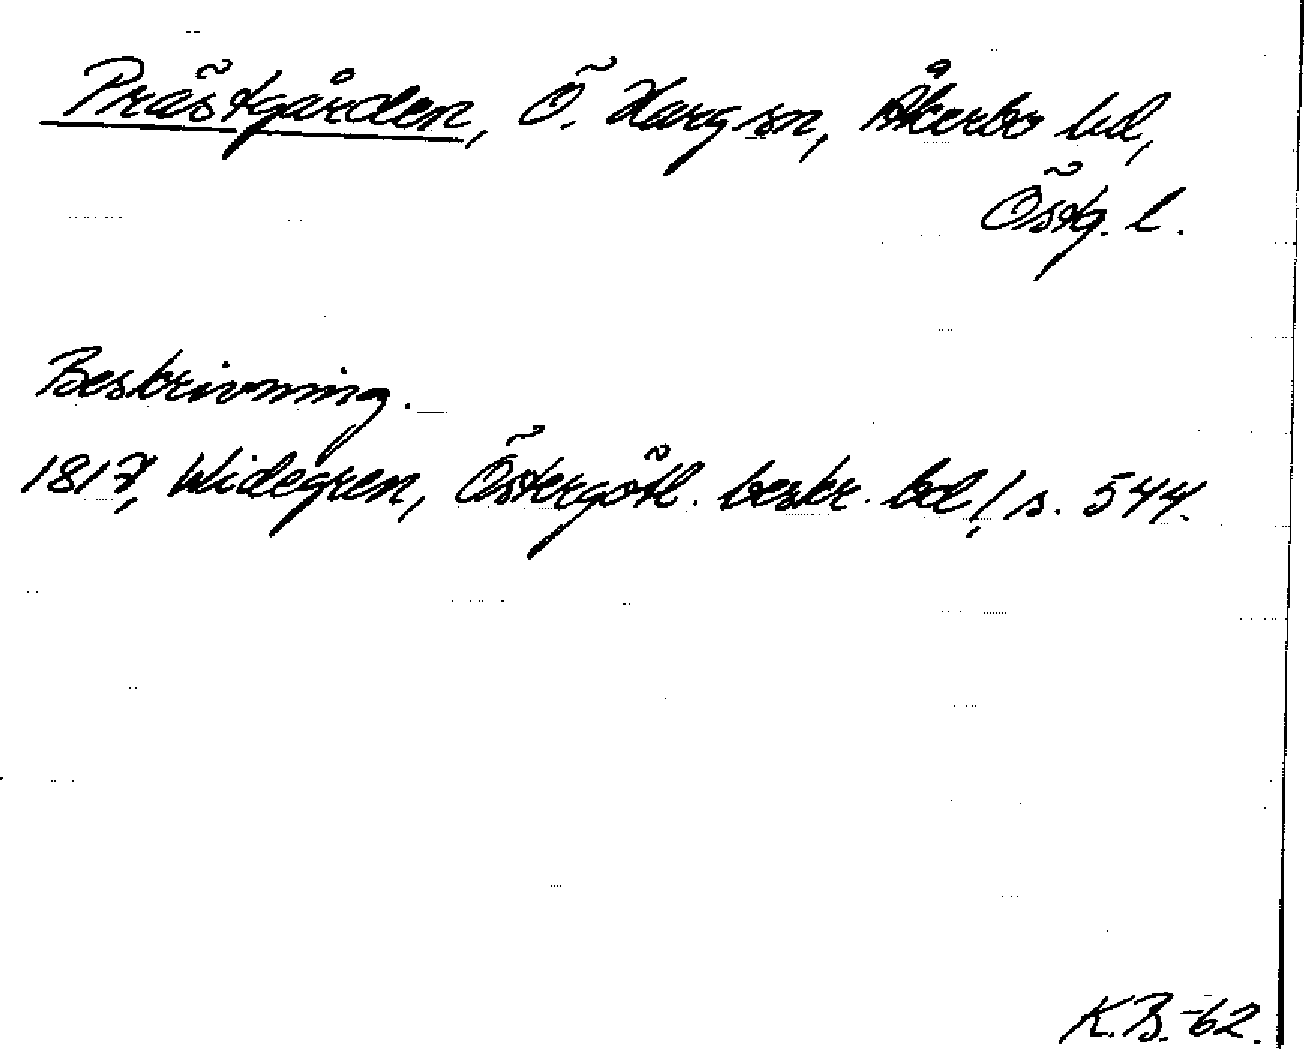 Prästgården, Ö. Harg sn, Åkerbo hd,
Östg. l.
Beskrivning.
1817, Widegren, Östergötl. beskr. bd 1 s. 544.
K.B.-62.